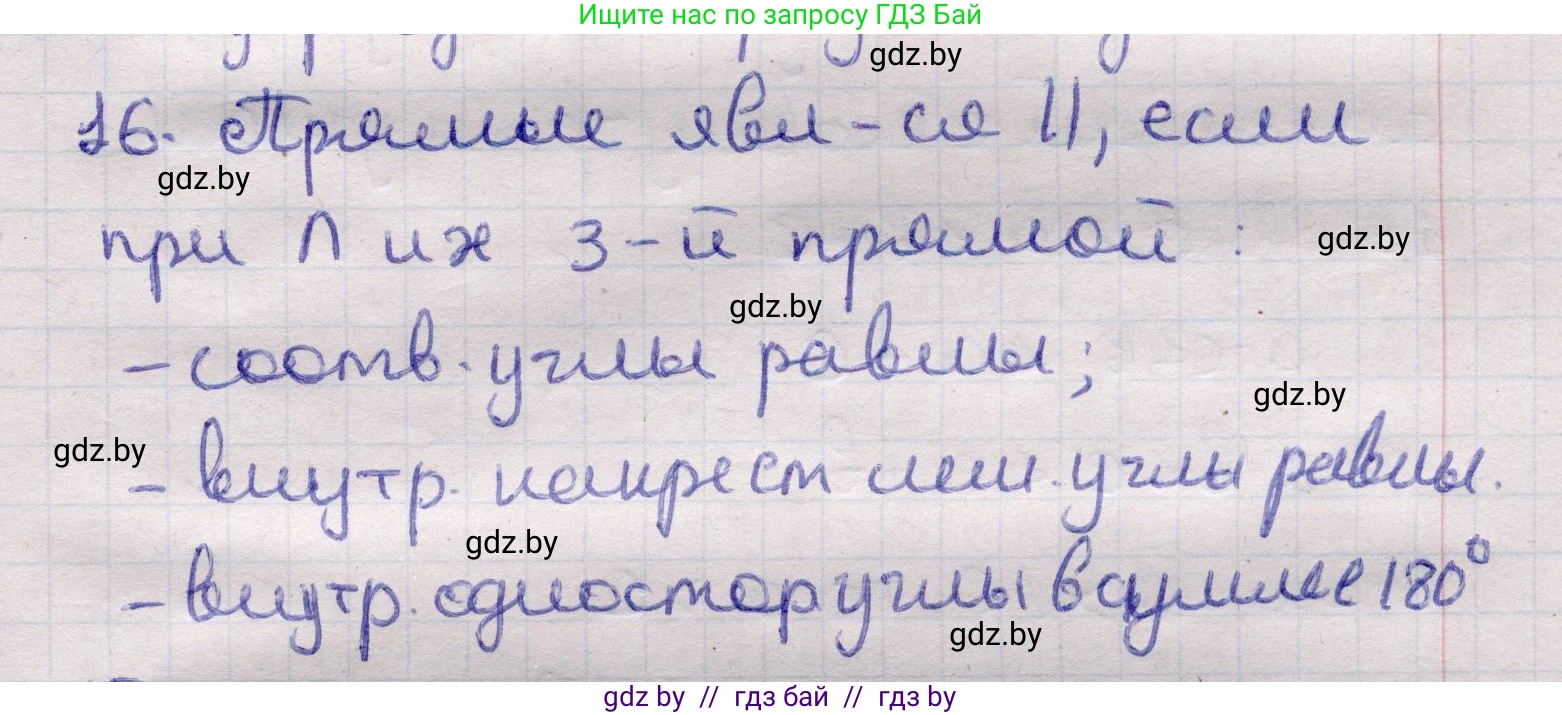 Ищите нас по запросу ГДЗ Бай
gdz.by
16. Прямые явл-ся ||, если
gdz.by
при ∩ их 3-й прямой :
gdz.by
gdz.by
- соотв. углы равны;
gdz.by
gdz.by
- внутр. накрест леш. углы равны.
gdz.by
- внутр. одностор углы в сумме 180°
gdz.by
gdz by // гдз бай // гдз by